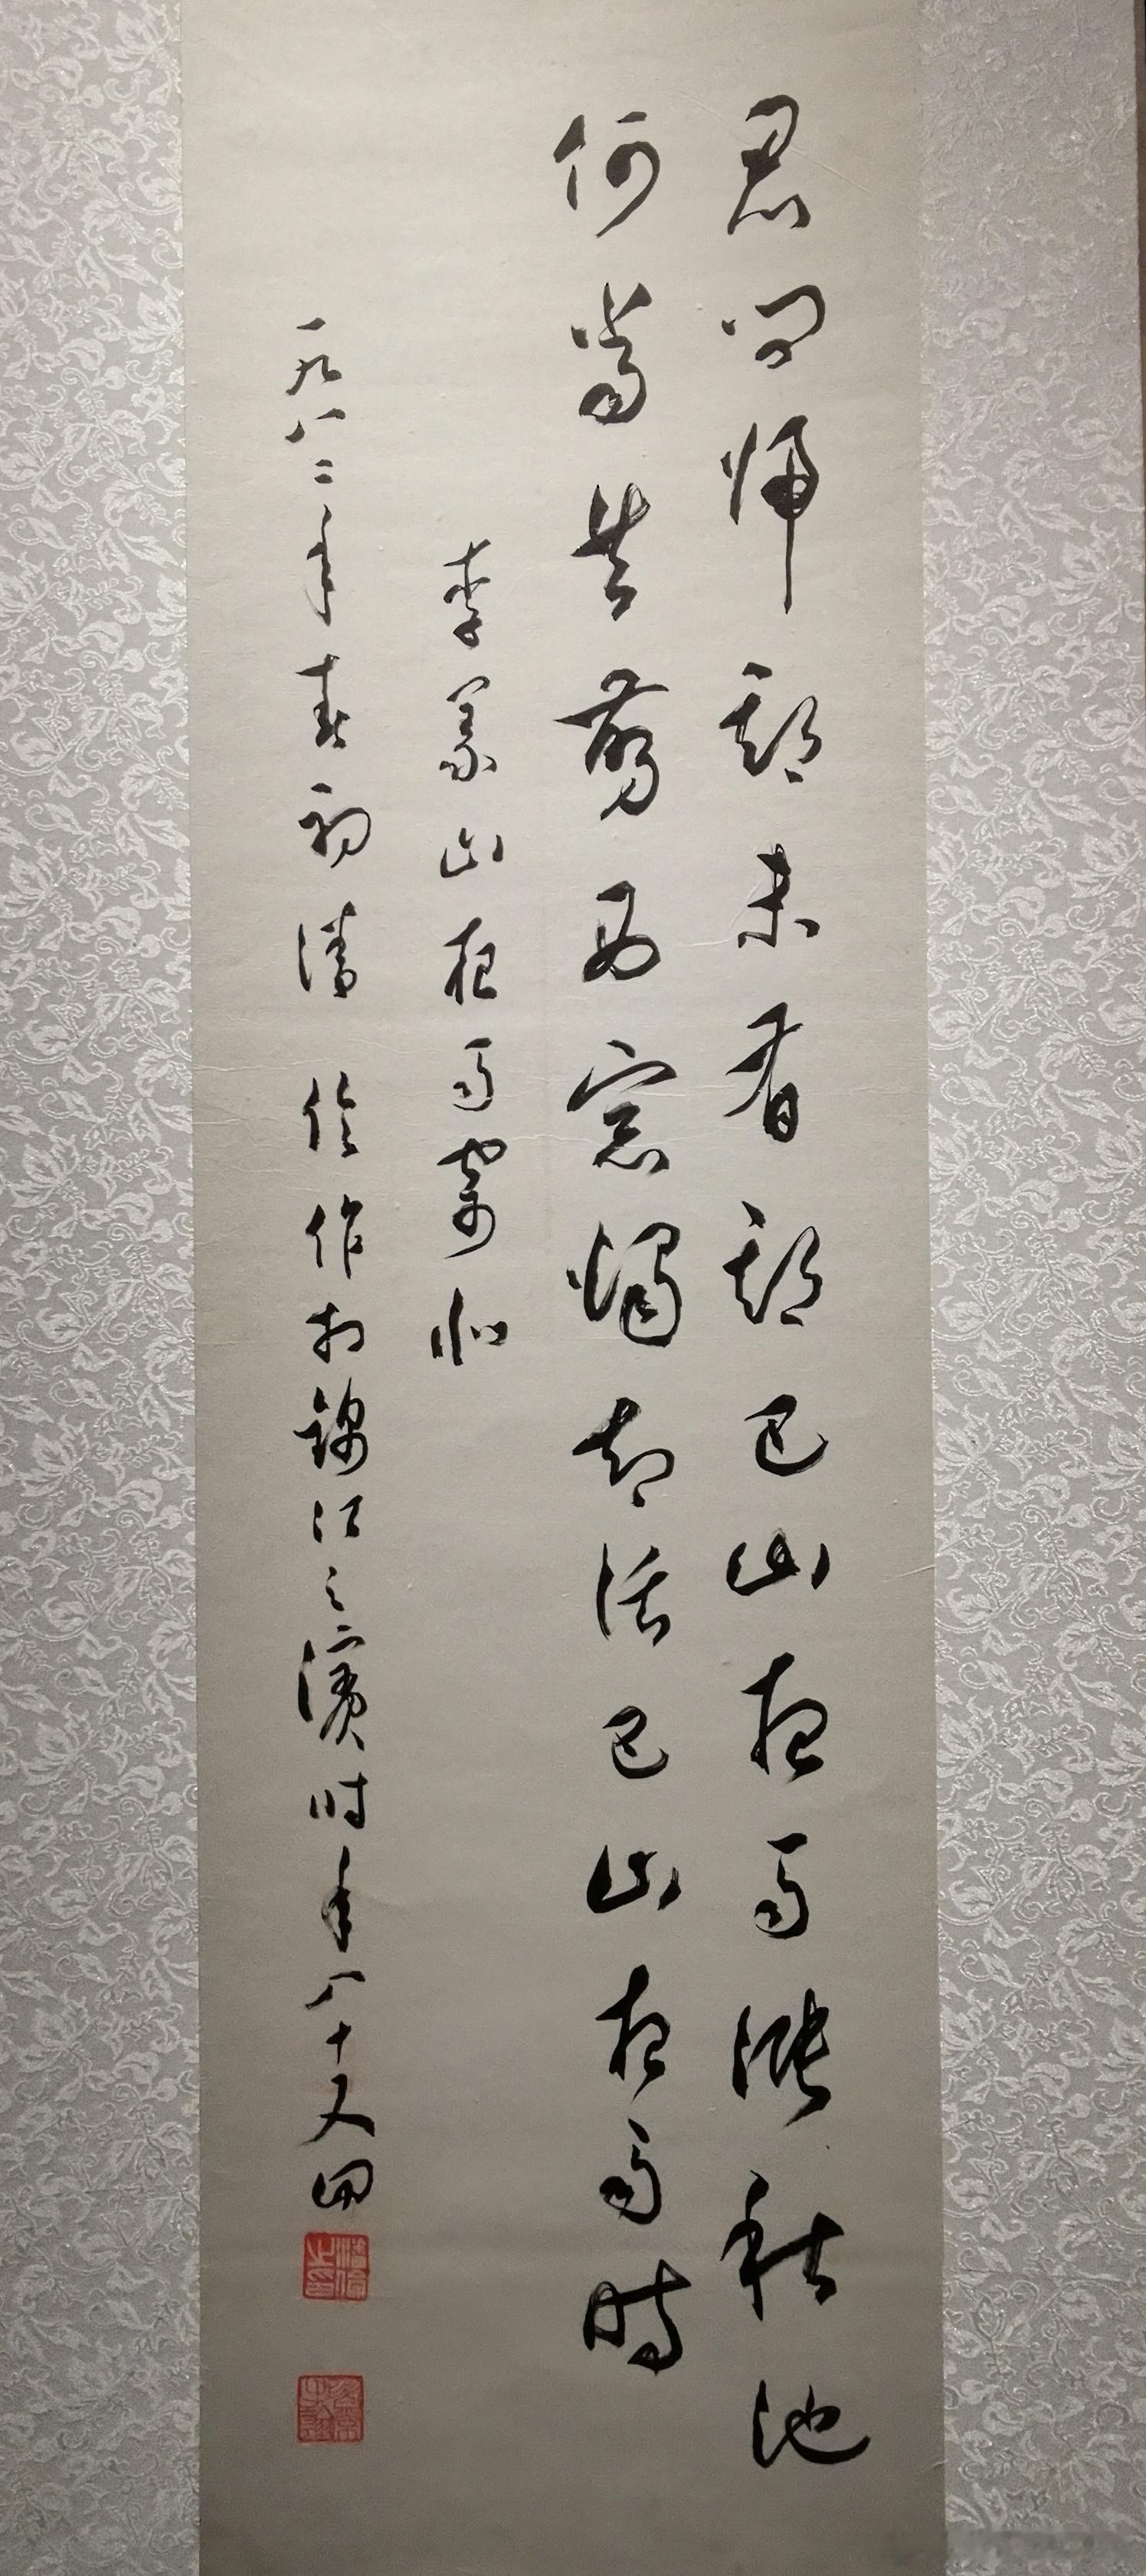 君问歸期未有期巴山夜雨漲秋池
何當共剪西窗燭却話巴山夜雨時
李義山夜雨寄北
一九八二年春初潘作於錦江之濱时年八十又四